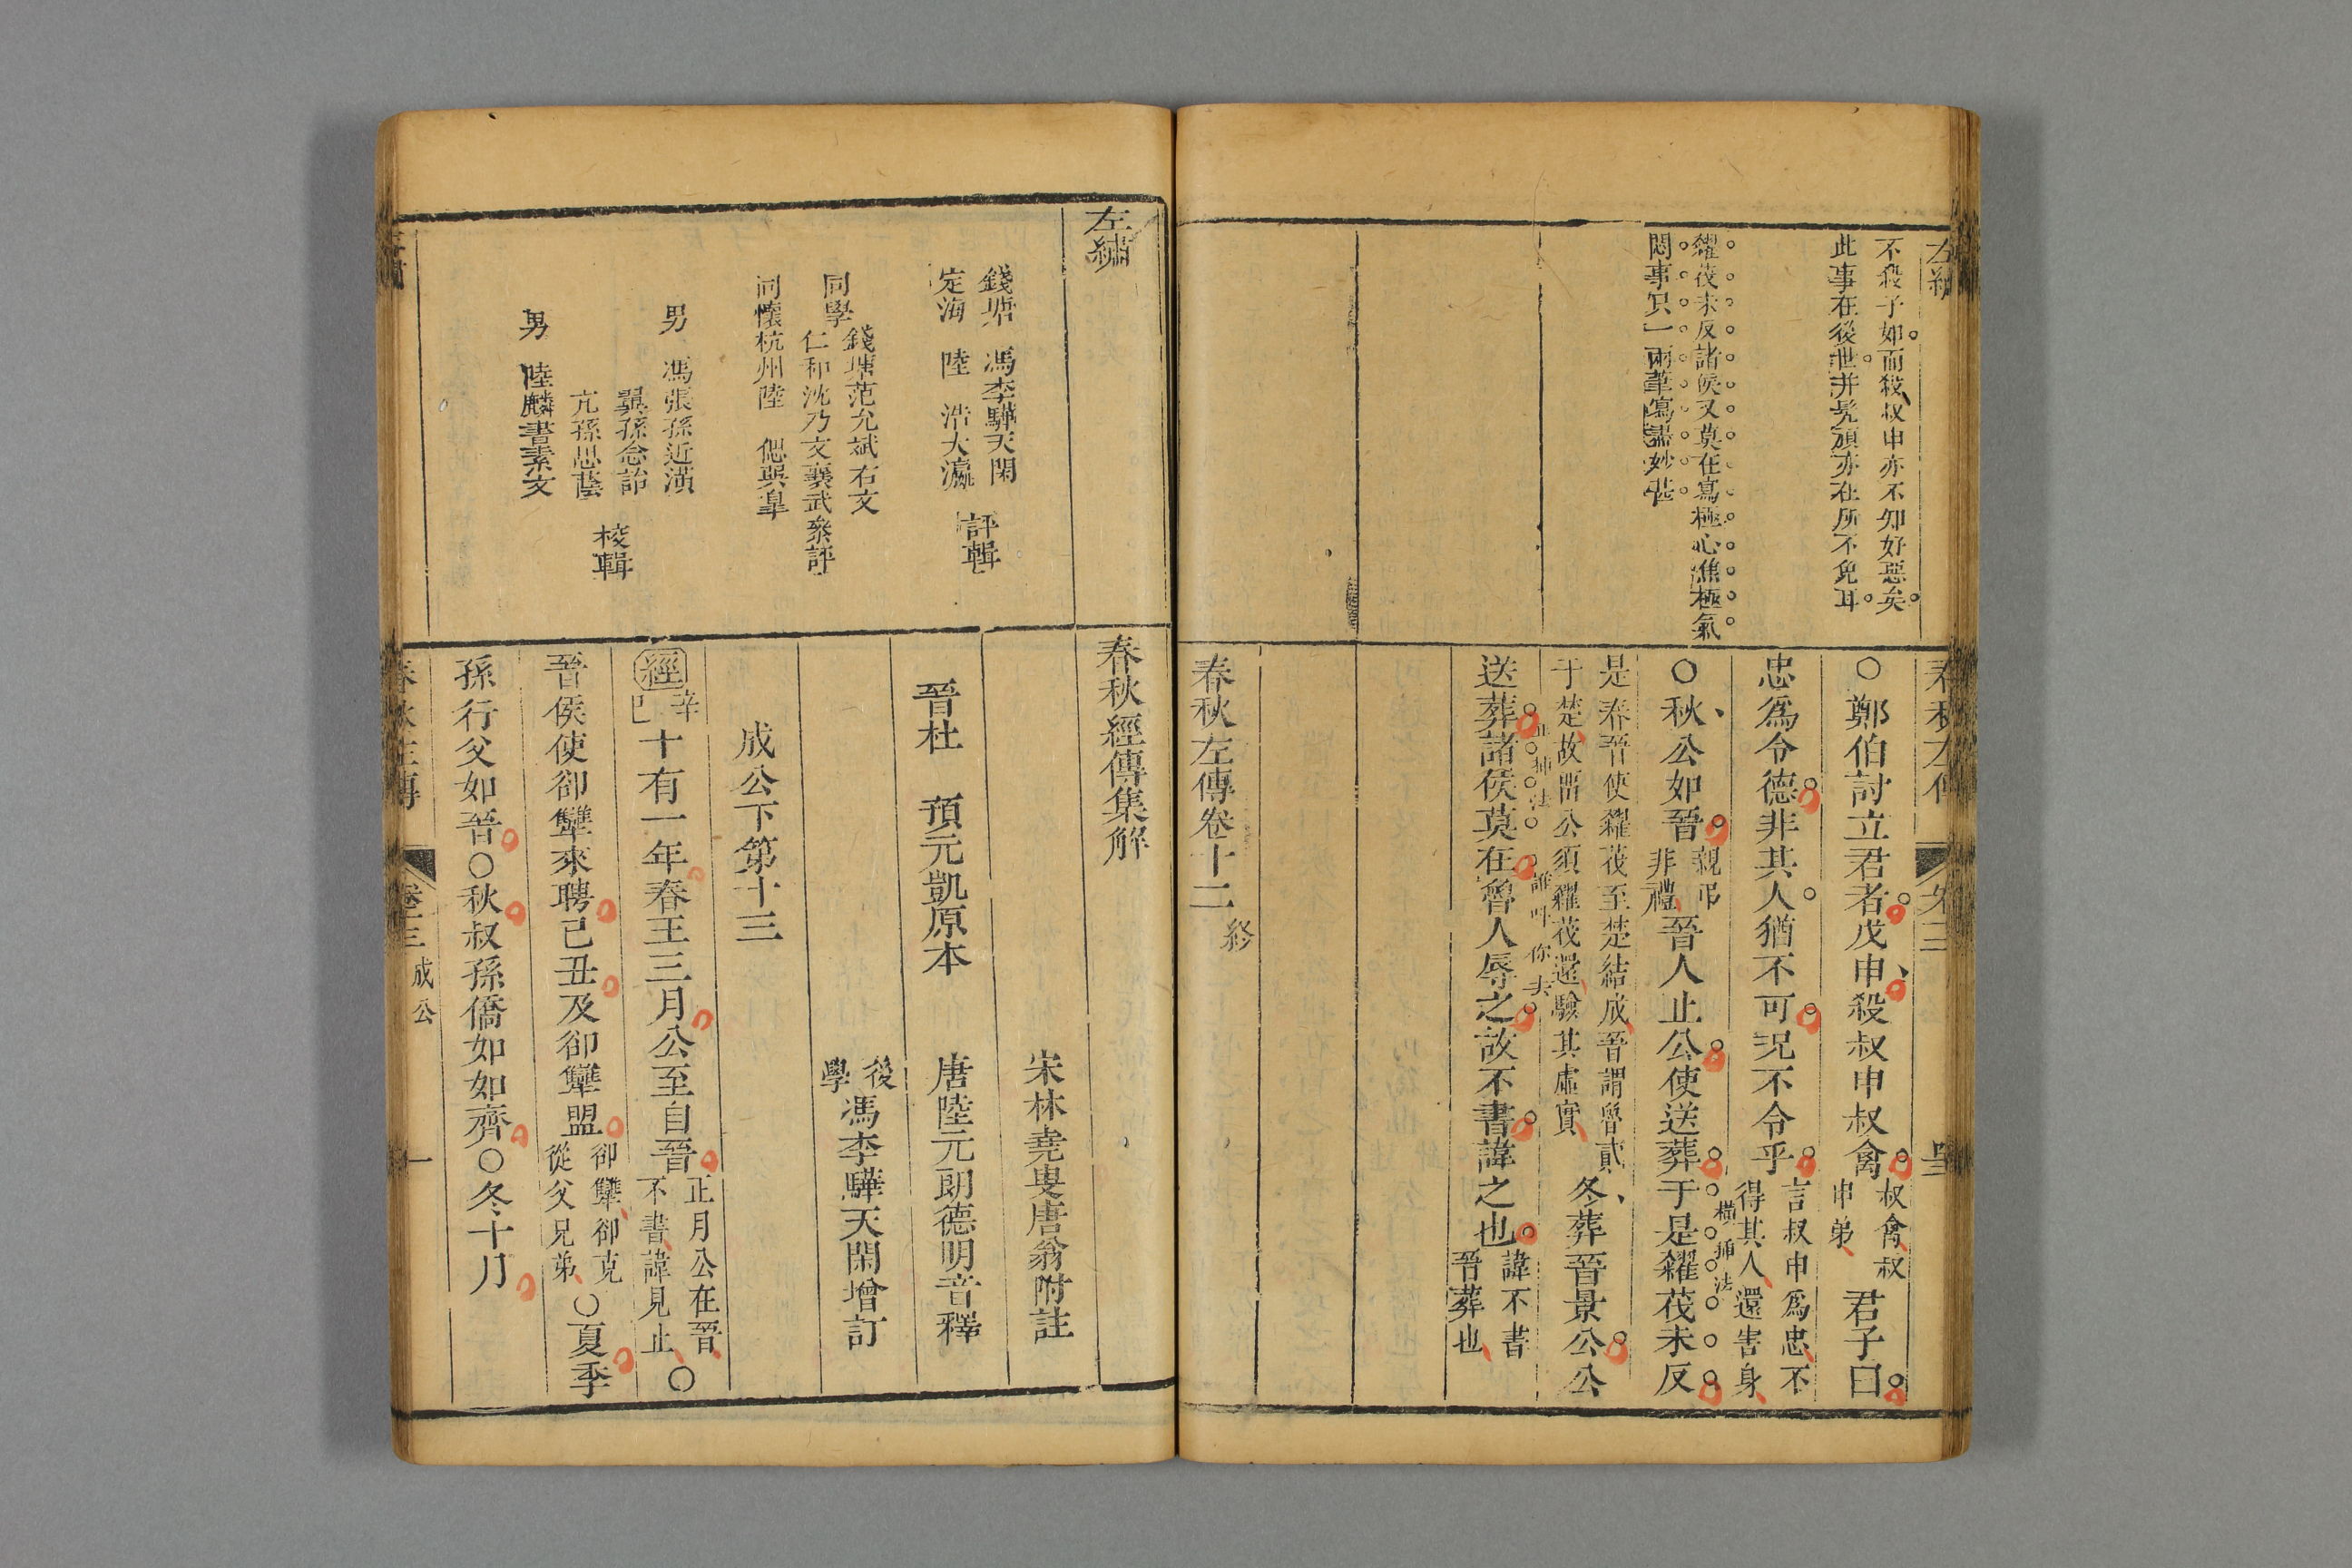 左繡
不殺子如而殺叔申亦不知好惡矣
此事在後世并髡頑亦在所不免耳
糴茷未反諸侯又莫在寫極心焦極氣
悶事只一兩筆寫盡妙甚
春秋左傳
○鄭伯討立君者戊申殺叔申叔禽
叔禽叔
申弟
君子曰
忠爲令德非其人猶不可況不令乎
言叔申爲忠不
得其人還害身
○秋公如晉
親弔
非禮
晉人止公使送葬于是糴茷未反
橫插法
是春晉使糴茷至楚結成晉謂魯貳
于楚故留公須糴茷還驗其虛實
冬葬晉景公公
送葬諸侯莫在魯人辱之故不書諱之也
插法
誰呌你去
諱不書
晉葬也
春秋左傳卷十二
終
左繡
錢塘 馮李驊天閑
定海 陸 浩大瀛
評輯
同學
錢塘范允斌右文
仁和沈乃文襄武
同懷杭州陸 偲與臯
叅評
男 馮張孫近潢
翼孫念詒
亢孫思蔭
男 陸麟書素文
校輯
春秋經傳集解
宋林堯叟唐翁附註
晉杜 預元凱原本
唐陸元朗德明音釋
後
學
馮李驊天閑增訂
成公下第十三
經
辛
巳
十有一年春王三月公至自晉
正月公在晉
不書諱見止
○
晉侯使郤犨來聘己丑及郤犨盟
郤犨郤克
從父兄弟
○夏季
孫行父如晉○秋叔孫僑如如齊○冬十月
春秋左傳
卷十三
成公
一